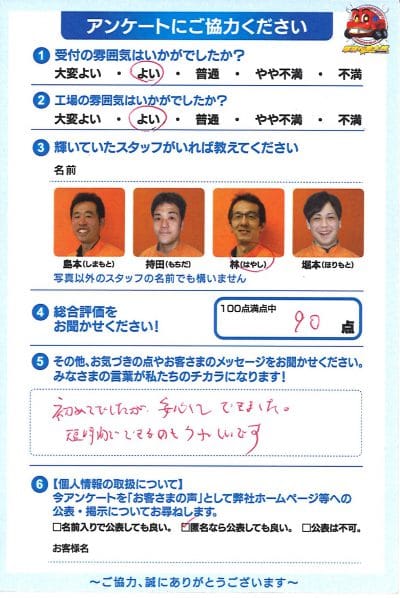 アンケートにご協力ください
1 受付の雰囲気はいかがでしたか?
大変よい ・ よい ・ 普通 ・ やや不満 ・ 不満
2 工場の雰囲気はいかがでしたか?
大変よい ・ よい ・ 普通 ・ やや不満 ・ 不満
3 輝いていたスタッフがいれば教えてください
名前
島本(しまもと) 持田(もちだ) 林(はやし) 堀本(ほりもと)
写真以外のスタッフの名前でも構いません
4 総合評価を
お聞かせください!
100点満点中
90 点
5 その他、お気づきの点やお客さまのメッセージをお聞かせください。
みなさまの言葉が私たちのチカラになります!
初めてでしたが、安心してできました。
短時間にできるのもうれしいです
6 【個人情報の取扱について】
今アンケートを「お客さまの声」として弊社ホームページ等への
公表・掲示についてお尋ねします。
□名前入りで公表しても良い。 ☑匿名なら公表しても良い。 □公表は不可。
お客様名
～ご協力、誠にありがとうございます～